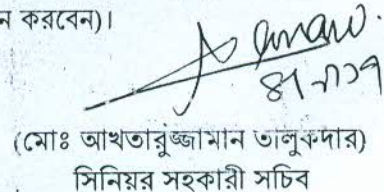 ন করবেন)।
(মোঃ আখতারুজ্জামান তালুকদার)
সিনিয়র সহকারী সচিব